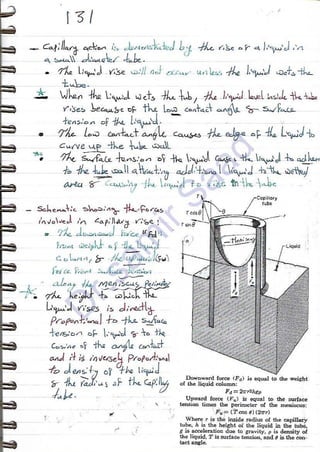 131
- Capillary action is demonstrated by the rise of a liquid in
a small diameter tube.
• The liquid rise will not occur unless the liquid wets the
tube.
• When the liquid wets the tub, the liquid level inside the tube
rises because of the low contact angle & surface
tension of the liquid.
• The low contact angle causes the edge of the liquid to
curve up the tube wall.
• The surface tension of the liquid causes the liquid to adhere
to the tube wall attracting additional liquid to the wetted
area & causing the liquid to rise in the tube
- Schematic showing the forces
involved in capillary rise:
• The downward force (Fd)
from weight of the liquid
column, & the upward (Fu)
force from surface tension
along the meniscus perimeter
• The height to which the
liquid rises is directly
proportional to the surface
tension of liquid & to the
cosine of the angle contact
and it is inversely proportional
to density of the liquid
& the radius of the capillary
tube.
Capillary
tube
T
T cos θ
T sin θ
Liquid
Downward force (Fd) is equal to the weight
of the liquid column:
Upward force (Fu) is equal to the surface
tension times the perimeter of the meniscus:
Fu = (T cos θ) (2πr)
Where r is the inside radius of the capillary
tube, h is the height of the liquid in the tube,
g is acceleration due to gravity, ρ is density of
the liquid, T is surface tension, and θ is the con-
tact angle.